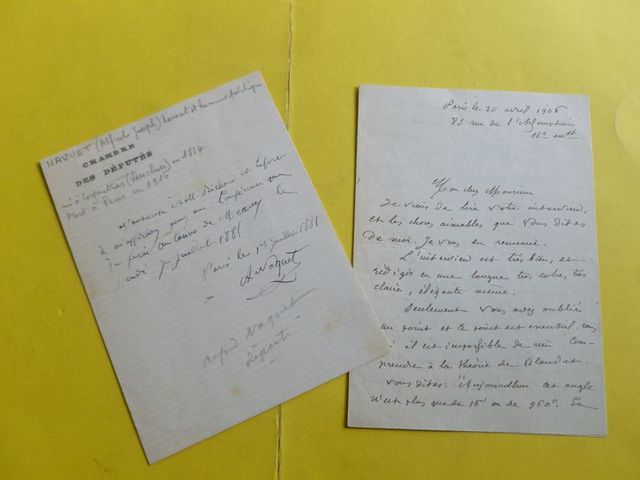 NAQUET (Alfred Joseph) savant et homme politique
CHAMBRE
DES DÉPUTÉS
né à Carpentras (Vaucluse) en 1834
Mort à Paris en 1916
J'autorise M.M.
à m'afficher pour une Conférence que
je ferai au
jeudi 7 juillet 1881
Paris le 1er juillet 1881
A Naquet
Alfred Naquet
député
Paris le 20 avril 1906
83 rue de l'Assomption
16e arrdt
Mon cher Monsieur
Je viens de lire votre interview,
et les choses aimables que vous dites
de moi. Je vous en remercie.
L'interview est très bien, et
rédigée en une langue très sobre, très
claire, élégante même.
Seulement vous avez oublié
un point et ce point est essentiel
il est impossible de rien com-
prendre à la théorie de Blandet.
Vous dites: "Aujourdhui cet angle
n'est plus que de 16' ou de 960". En